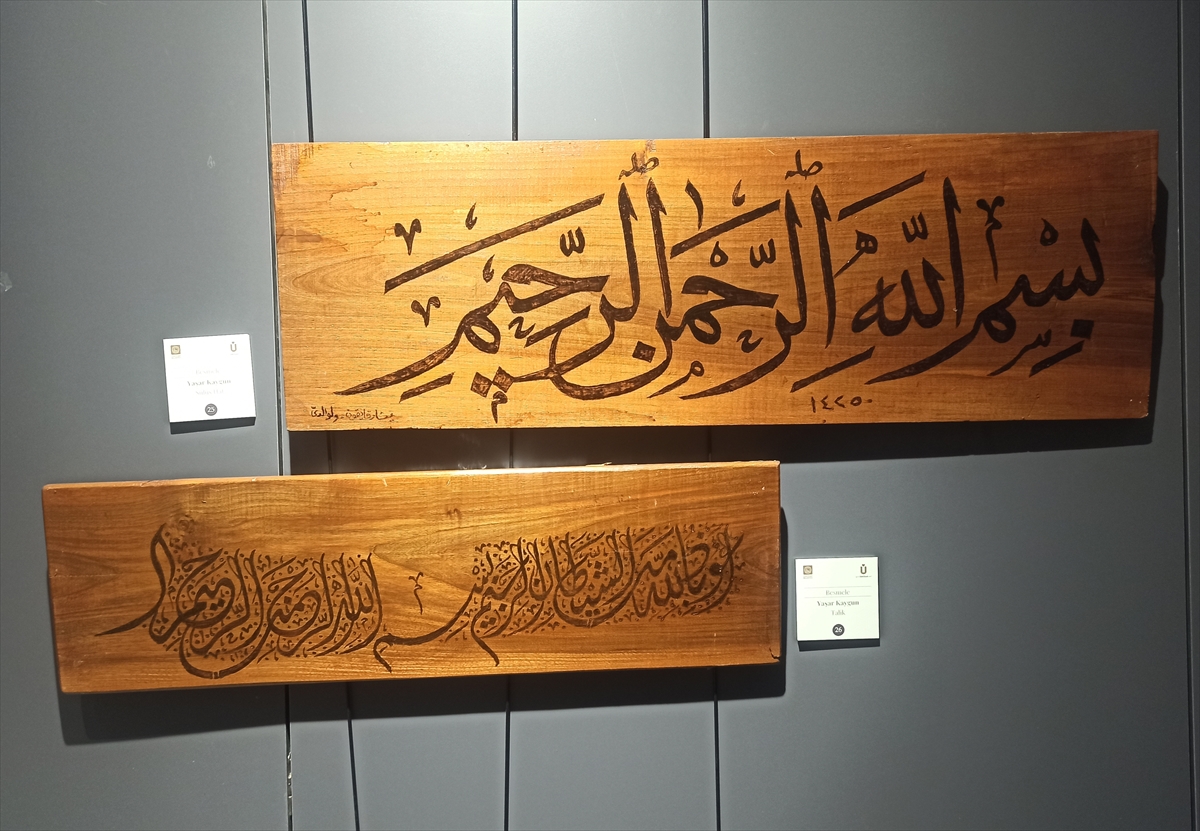 بِسْمِ اللّٰهِ الرَّحْمٰنِ الرَّحِيمِ
Besmele
Yaşar Kaygun
25
اعوذ بالله من الشيطان الرجيم
بسم الله الرحمن الرحيم
Besmele
Yaşar Kaygun
Talik
26